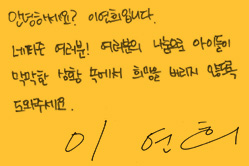 안녕하세요? 이연희입니다.
네티즌 여러분! 여러분의 나눔으로 아이들이
막막한 상황 속에서 희망을 버리지 않도록
도와주세요.
이 연희